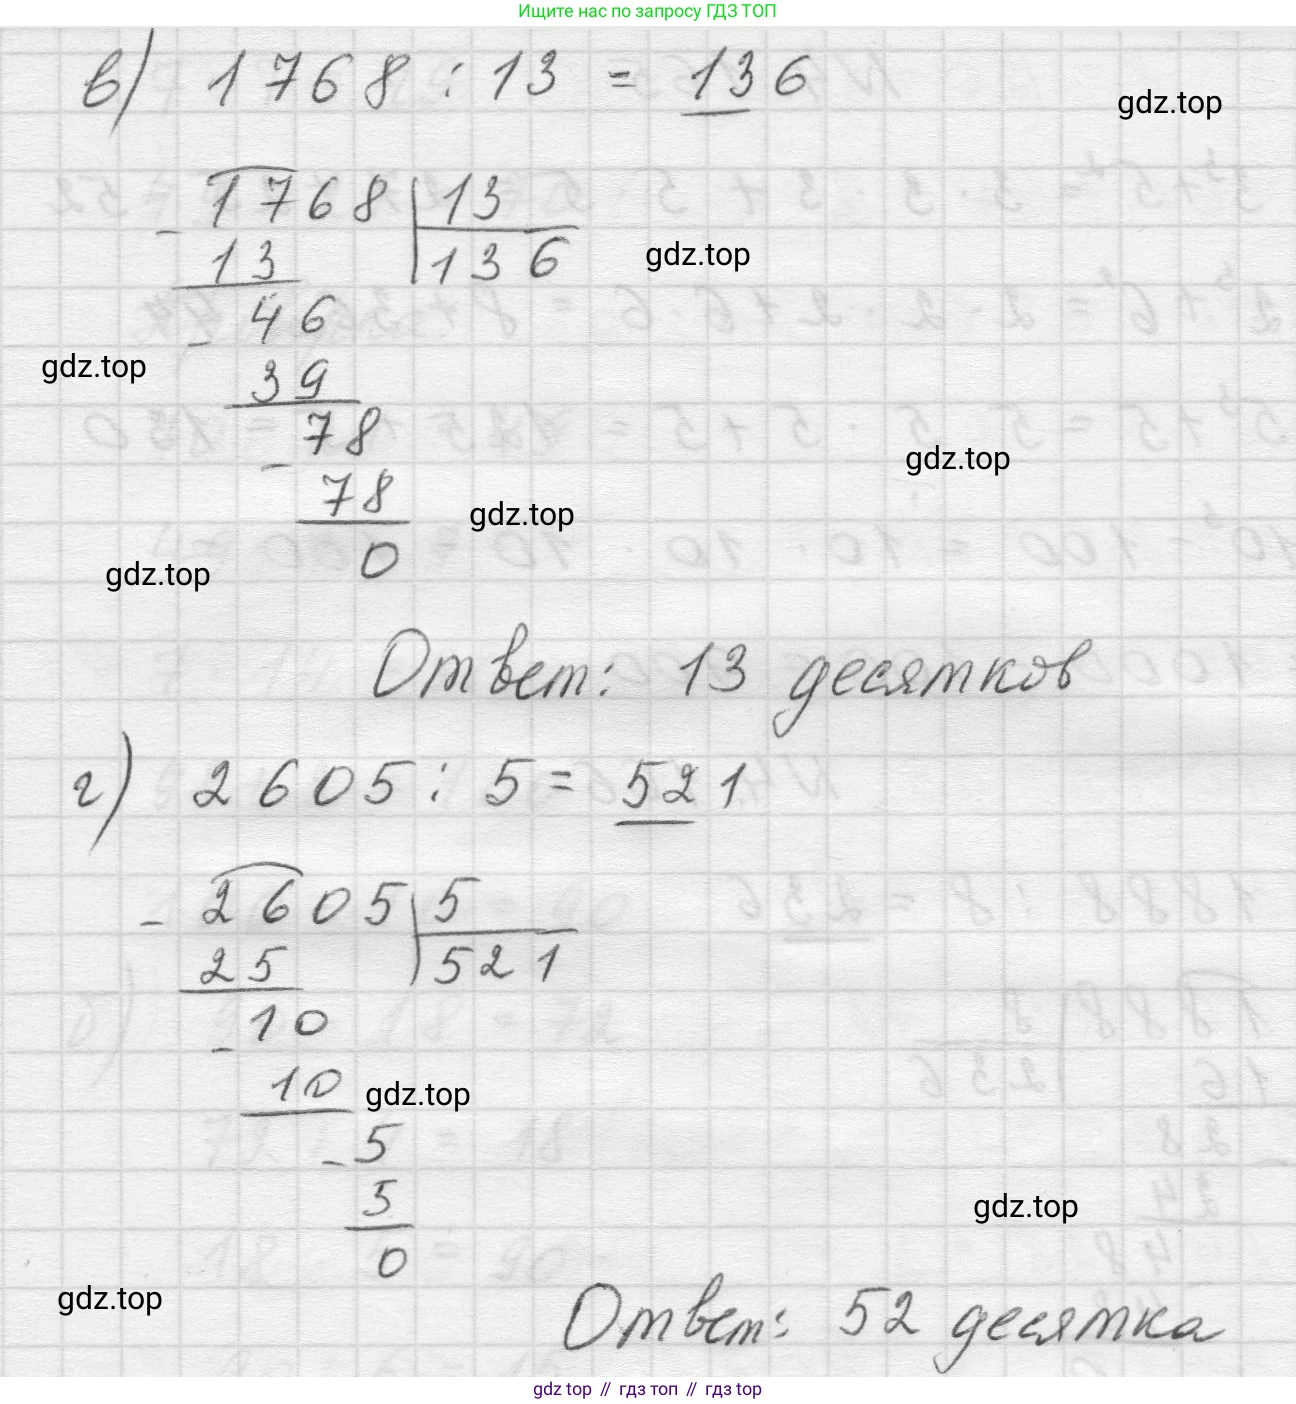 Ищите нас по запросу ГДЗ ТОП
в) 1768 : 13 = 136
gdz.top
1768 | 13
- 13 136
gdz.top
- 46
gdz.top
39
- 78
gdz.top
78
gdz.top
0
gdz.top
Ответ: 13 десятков
г) 2605 : 5 = 521
- 2605 | 5
25 521
- 10
10
gdz.top
- 5
5
gdz.top
0
gdz.top
Ответ: 52 десятка
gdz top // гдз топ // gdz top